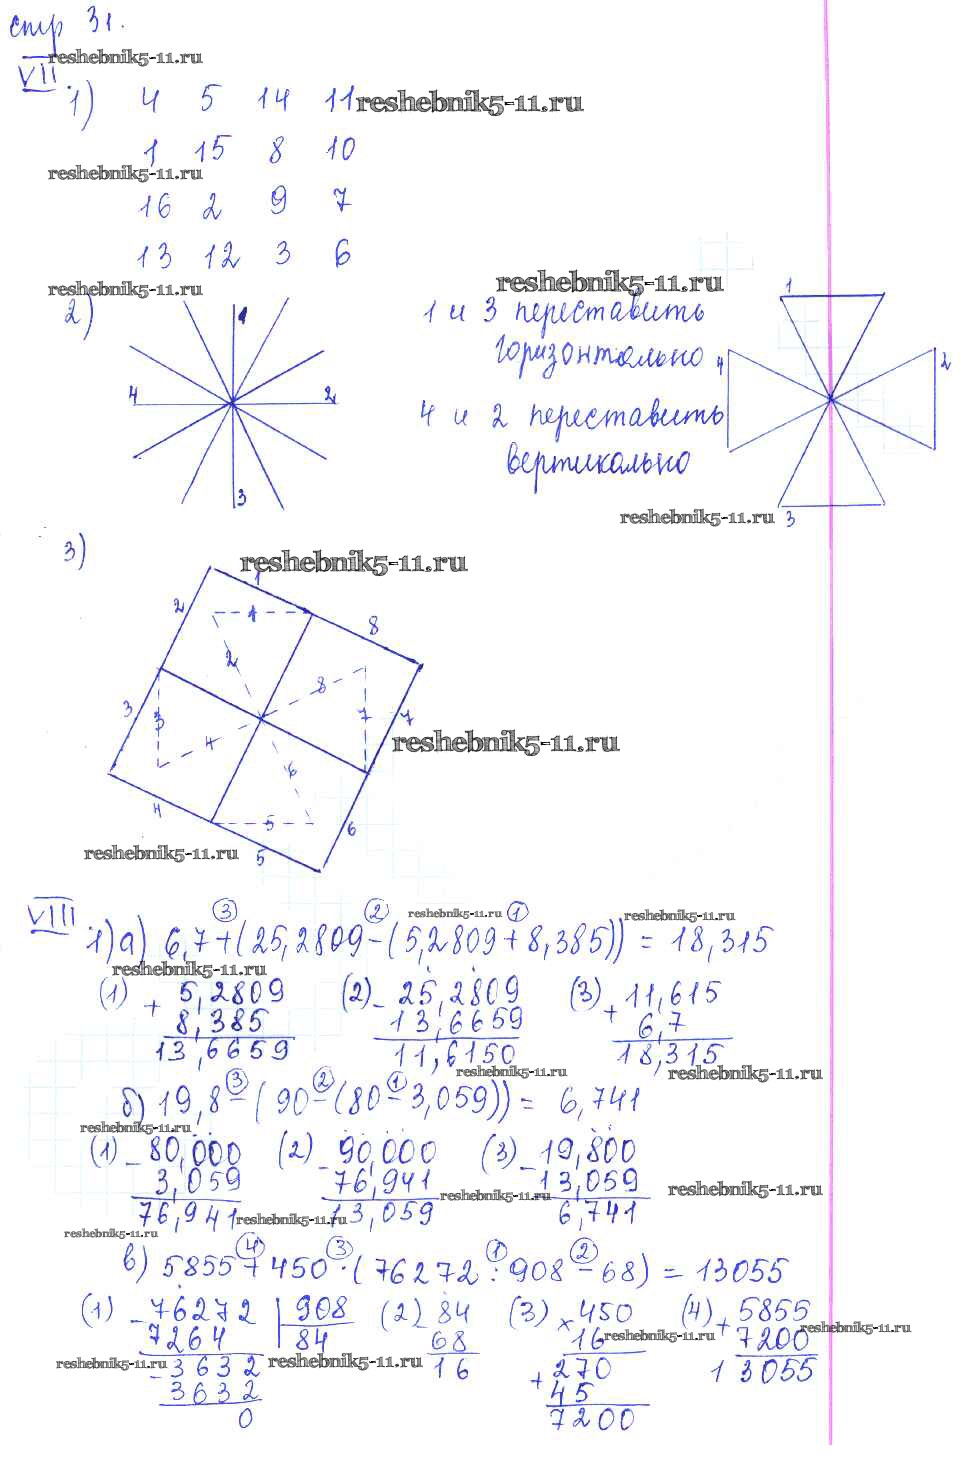 стр 31.
reshebnik5-11.ru
VII.
1) 4 5 14 11
reshebnik5-11.ru
1 15 8 10
reshebnik5-11.ru
16 2 9 7
13 12 3 6
reshebnik5-11.ru
reshebnik5-11.ru
2)
1
4 2
3
1 и 3 переставить
горизонтально
4 и 2 переставить
вертикально
1
4 2
3
reshebnik5-11.ru
3)
reshebnik5-11.ru
1
2 1 8
2 8
3 3 7 7
reshebnik5-11.ru
4 6
4 5 6
reshebnik5-11.ru
5
VIII.
3 2 1
reshebnik5-11.ru
reshebnik5-11.ru
1) а) 6,7+(25,2809-(5,2809+8,385)) = 18,315
reshebnik5-11.ru
(1) + 5,2809 (2) - 25,2809 (3) + 11,615
8,385 13,6659 6,7
13,6659 11,6150 18,315
reshebnik5-11.ru
reshebnik5-11.ru
3 2 1
б) 19,8-(90-(80-3,059)) = 6,741
reshebnik5-11.ru
(1) - 80,000 (2) - 90,000 (3) - 19,800
3,059 76,941 13,059
reshebnik5-11.ru
reshebnik5-11.ru
76,941 13,059 6,741
reshebnik5-11.ru
reshebnik5-11.ru
4 3 1 2
в) 5855+450·(76272:908-68) = 13055
(1) - 76272 908 (2) - 84 (3) × 450 (4) + 5855
7264 84 68 16 7200
reshebnik5-11.ru
reshebnik5-11.ru
reshebnik5-11.ru
reshebnik5-11.ru
- 3632 16 + 270 13055
3632 45
0 7200